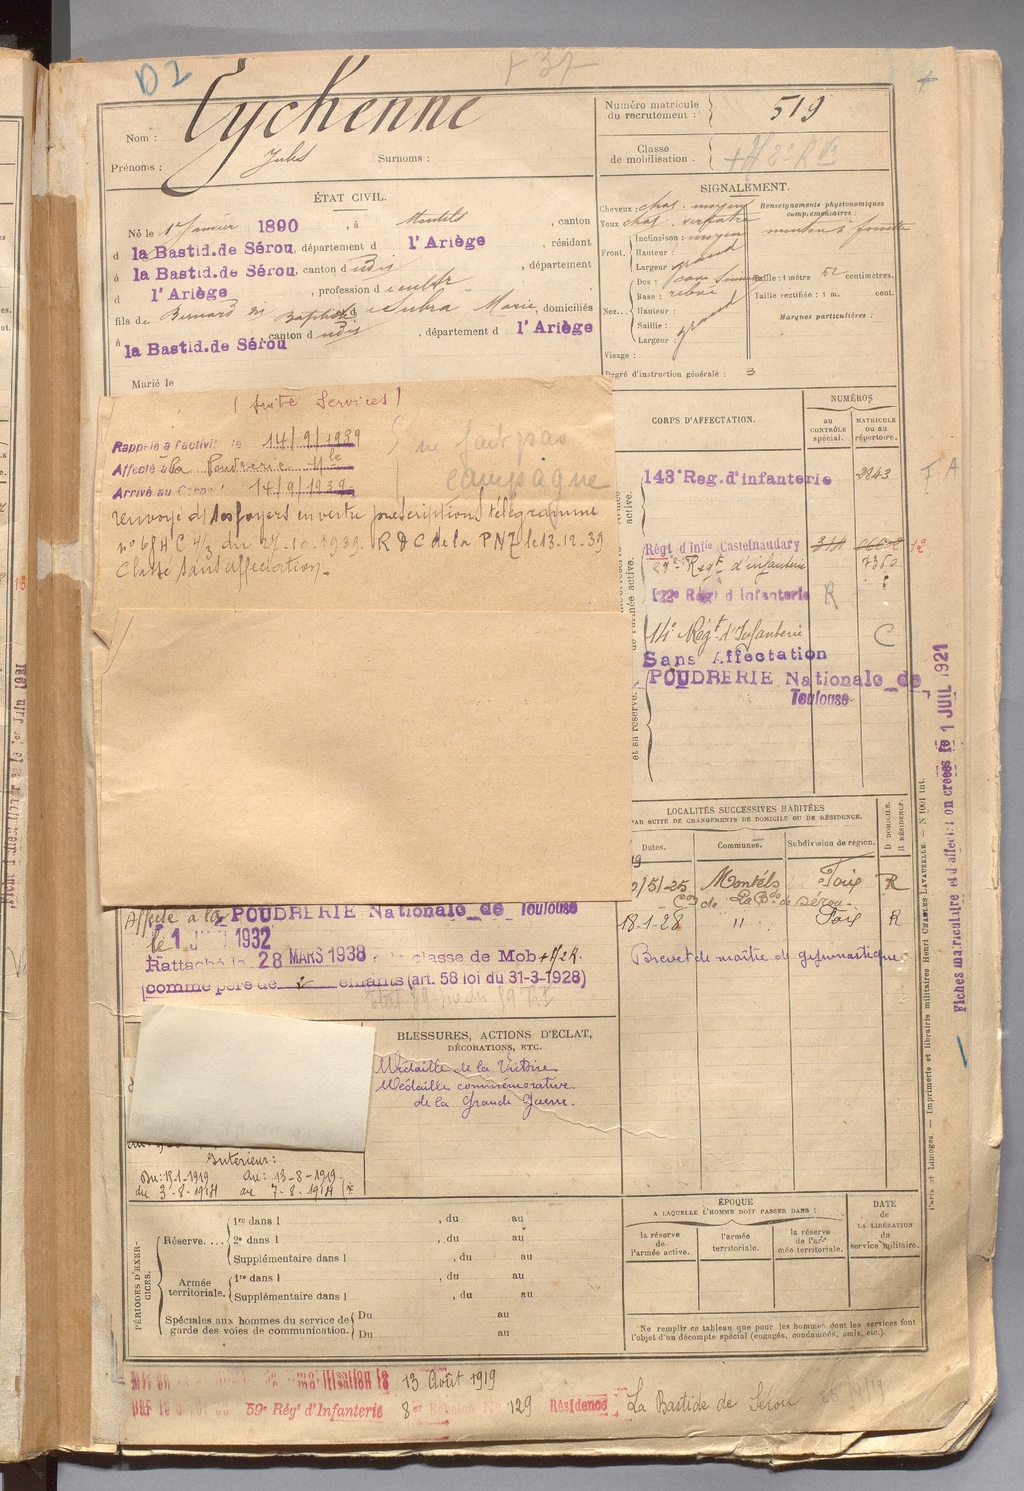 D2
F 37
Eychenne
Nom :
Prénoms : Jules Surnoms :
Numéro matricule du recrutement : 519
Classe de mobilisation .
ÉTAT CIVIL.
Né le 1er Janvier 1890, à Montels, canton
d la Bastid. de Sérou, département d l'Ariège, résidant
à la Bastid. de Sérou, canton d udit, département
d l'Ariège, profession d
fils de Bernard Baptiste et de Subra Marie, domiciliés
à la Bastid. de Sérou canton d udit, département d l'Ariège
Marié le
SIGNALEMENT.
Cheveux : chat. moyen
Yeux chat. verdâtre
Front. Inclinaison : moyen
Hauteur :
Largeur grand
Nez... Dos :
Base : relevé
Hauteur :
Saillie :
Largeur : grand
Visage :
Degré d'instruction générale : 3
Renseignements physionomiques complémentaires :
menton à fossette
Taille : 1 mètre 62 centimètres.
Taille rectifiée : 1 m. cent.
Marques particulières :
(suite Services)
Rappelé à l'activité le 14/9/1939
Affecté à la Poudrerie
Arrivé au Corps 14/9/1939
ne fait pas campagne
renvoyé d/ ses foyers en vertu prescriptions télégramme
du 27.10.1939. R D C de la PNT le 13.12.39
Classé sans affectation
CORPS D'AFFECTATION.
NUMÉROS
AU CONTRÔLE spécial.
MATRICULE OU AU répertoire.
143e Reg. d'infanterie 2243
F A
Régt d'infie Castelnaudary
Regt d'infanterie 7360
122e Régt d'Infanterie R
14e Régt d'Infanterie C
Sans Affectation
POUDRERIE Nationale de Toulouse
LOCALITÉS SUCCESSIVES HABITÉES
PAR SUITE DE CHANGEMENTS DE DOMICILE OU DE RÉSIDENCE.
Dates. Communes. Subdivision de région. D DOMICILE. R RÉSIDENCE.
/5/25 Montels Foix R
Con de La Bde de Sérou
18-1-28 " Foix R
Brevet de maître de gymnastique
Affecté à la POUDRERIE Nationale de Toulouse
le 1 1932
Rattaché le 28 MARS 1938 classe de Mob
comme père de enfants (art. 58 loi du 31-3-1928)
BLESSURES, ACTIONS D'ÉCLAT,
DÉCORATIONS, ETC.
Médaille de la Victoire
Médaille commémorative
de la Grande Guerre.
Intérieur :
Du : 15-1-1919 au : 13-8-1919
du 3-8-1914 au 7-8-1914
PÉRIODES D'EXERCICES.
Réserve.... 1re dans l , du au
2e dans l , du au
Supplémentaire dans l , du au
Armée territoriale. 1re dans l , du au
Supplémentaire dans l , du au
Spéciales aux hommes du service de garde des voies de communication. Du au
Du au
ÉPOQUE
A LAQUELLE L'HOMME DOIT PASSER DANS :
la réserve de l'armée active.
l'armée territoriale.
la réserve de l'armée territoriale.
DATE de LA LIBÉRATION du service militaire.
Ne remplir ce tableau que pour les hommes dont les services font
l'objet d'un décompte spécial (engagés, condamnés, omis, etc.).
13 Août 1919
59e Régt d'Infanterie 8e Echelon No 129 Résidence La Bastide de Sérou
Paris et Limoges. — Imprimerie et librairie militaires Henri CHARLES-LAVAUZELLE. — N 1001 int.
Fiches matriculaire et d'affectation créées le 1 JUIL 1921